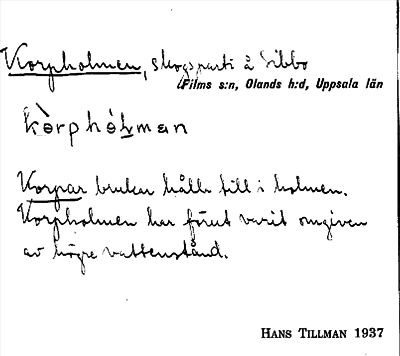 Korpholmen, skogsparti å Sibbo
Films s:n, Olands h:d, Uppsala län
kòrphólman
Korpar bruka hålla till i holmen.
Korpholmen har förut varit omgiven
av högre vattenstånd.
HANS TILLMAN 1937